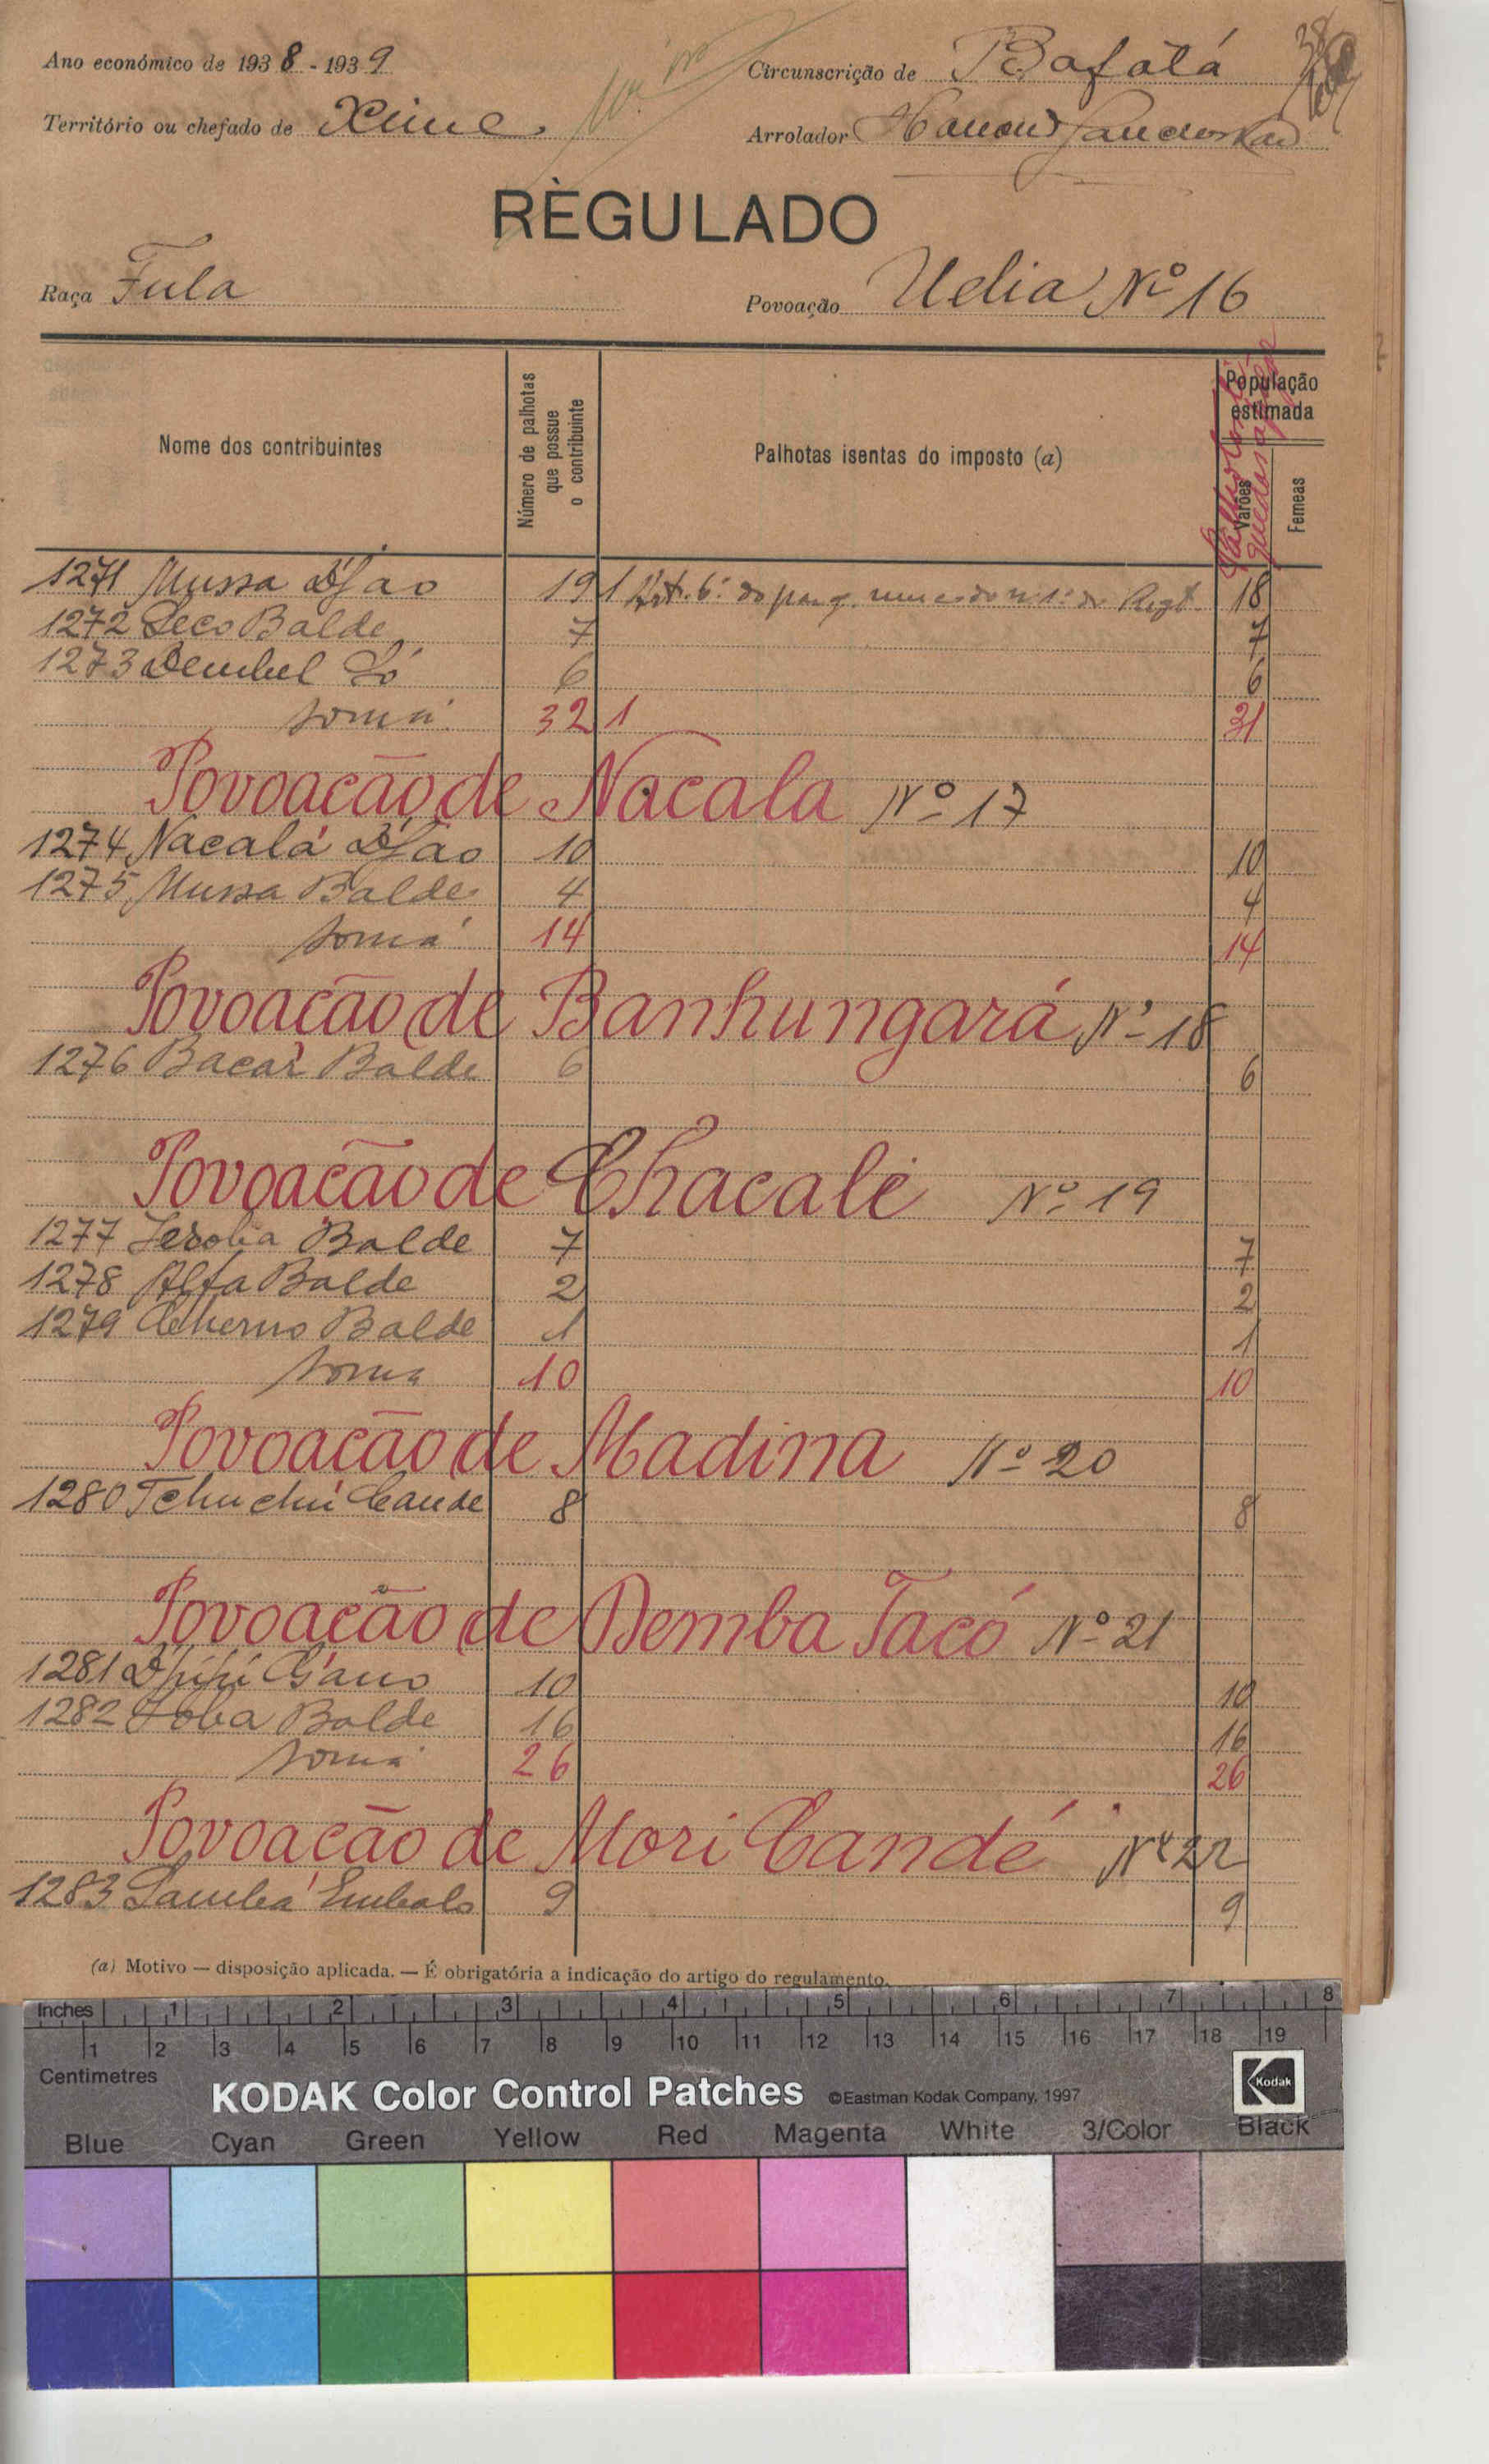 Ano económico de 1938 - 1939
Circunscrição de Bafatá
38
Território ou chefado de Xime
Arrolador
REGULADO
Raça Fula
Povoação Uelia Nº 16
Nome dos contribuintes
Número de palhotas que possue o contribuinte
Palhotas isentas do imposto (a)
População estimada
Varões
Femeas
1271 Mussa Djao 19 1 Art. 6º do 18
1272 Seco Balde 7 7
1273 Dembel Só 6 6
soma 32 1 31
Povoação de Nacala Nº 17
1274 Nacalá Djao 10 10
1275 Mussa Balde 4 4
soma 14 14
Povoação de Banhungará Nº 18
1276 Bacar Balde 6 6
Povoação de Chacali Nº 19
1277 Balde 7 7
1278 Alfa Balde 2 2
1279 Cherno Balde 1 1
soma 10 10
Povoação de Madina Nº 20
1280 Tchuchú Cande 8 8
Povoação de Demba Tacó Nº 21
1281 10 10
1282 Balde 16 16
soma 26 26
Povoação de Mori Candé Nº 22
1283 Samba Embalo 9 9
(a) Motivo — disposição aplicada. — É obrigatória a indicação do artigo do regulamento.
Inches 1 2 3 4 5 6 7 8
1 2 3 4 5 6 7 8 9 10 11 12 13 14 15 16 17 18 19
Centimetres
KODAK Color Control Patches ©Eastman Kodak Company, 1997 Kodak
Blue Cyan Green Yellow Red Magenta White 3/Color Black